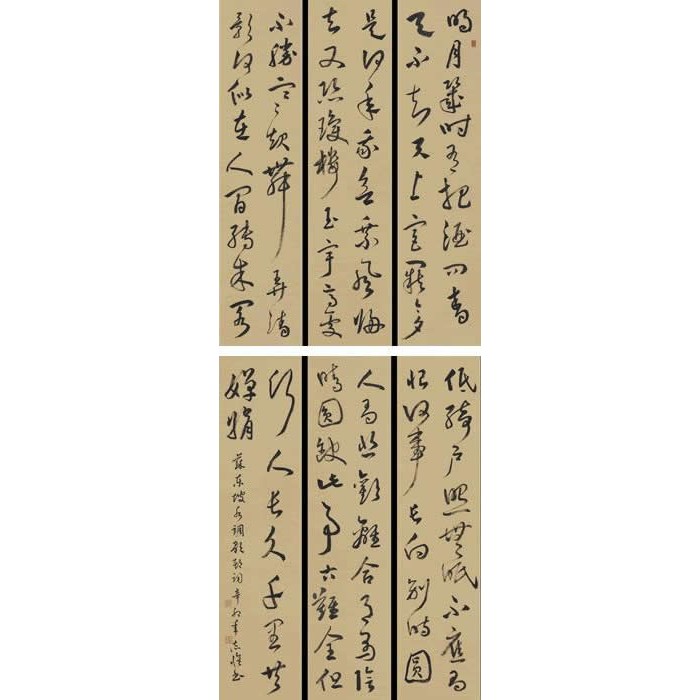 明月幾時有把酒問青
天不知天上宮闕今夕
是何年我欲乘風歸
去又恐瓊樓玉宇高處
不勝寒起舞弄清
影何似在人間轉朱閣
低綺戶照無眠不應有
恨何事長向別時圓
人有悲歡離合月有陰
晴圓缺此事古難全但
願人長久千里共
嬋娟
蘇東坡水調歌頭詞辛卯年志書